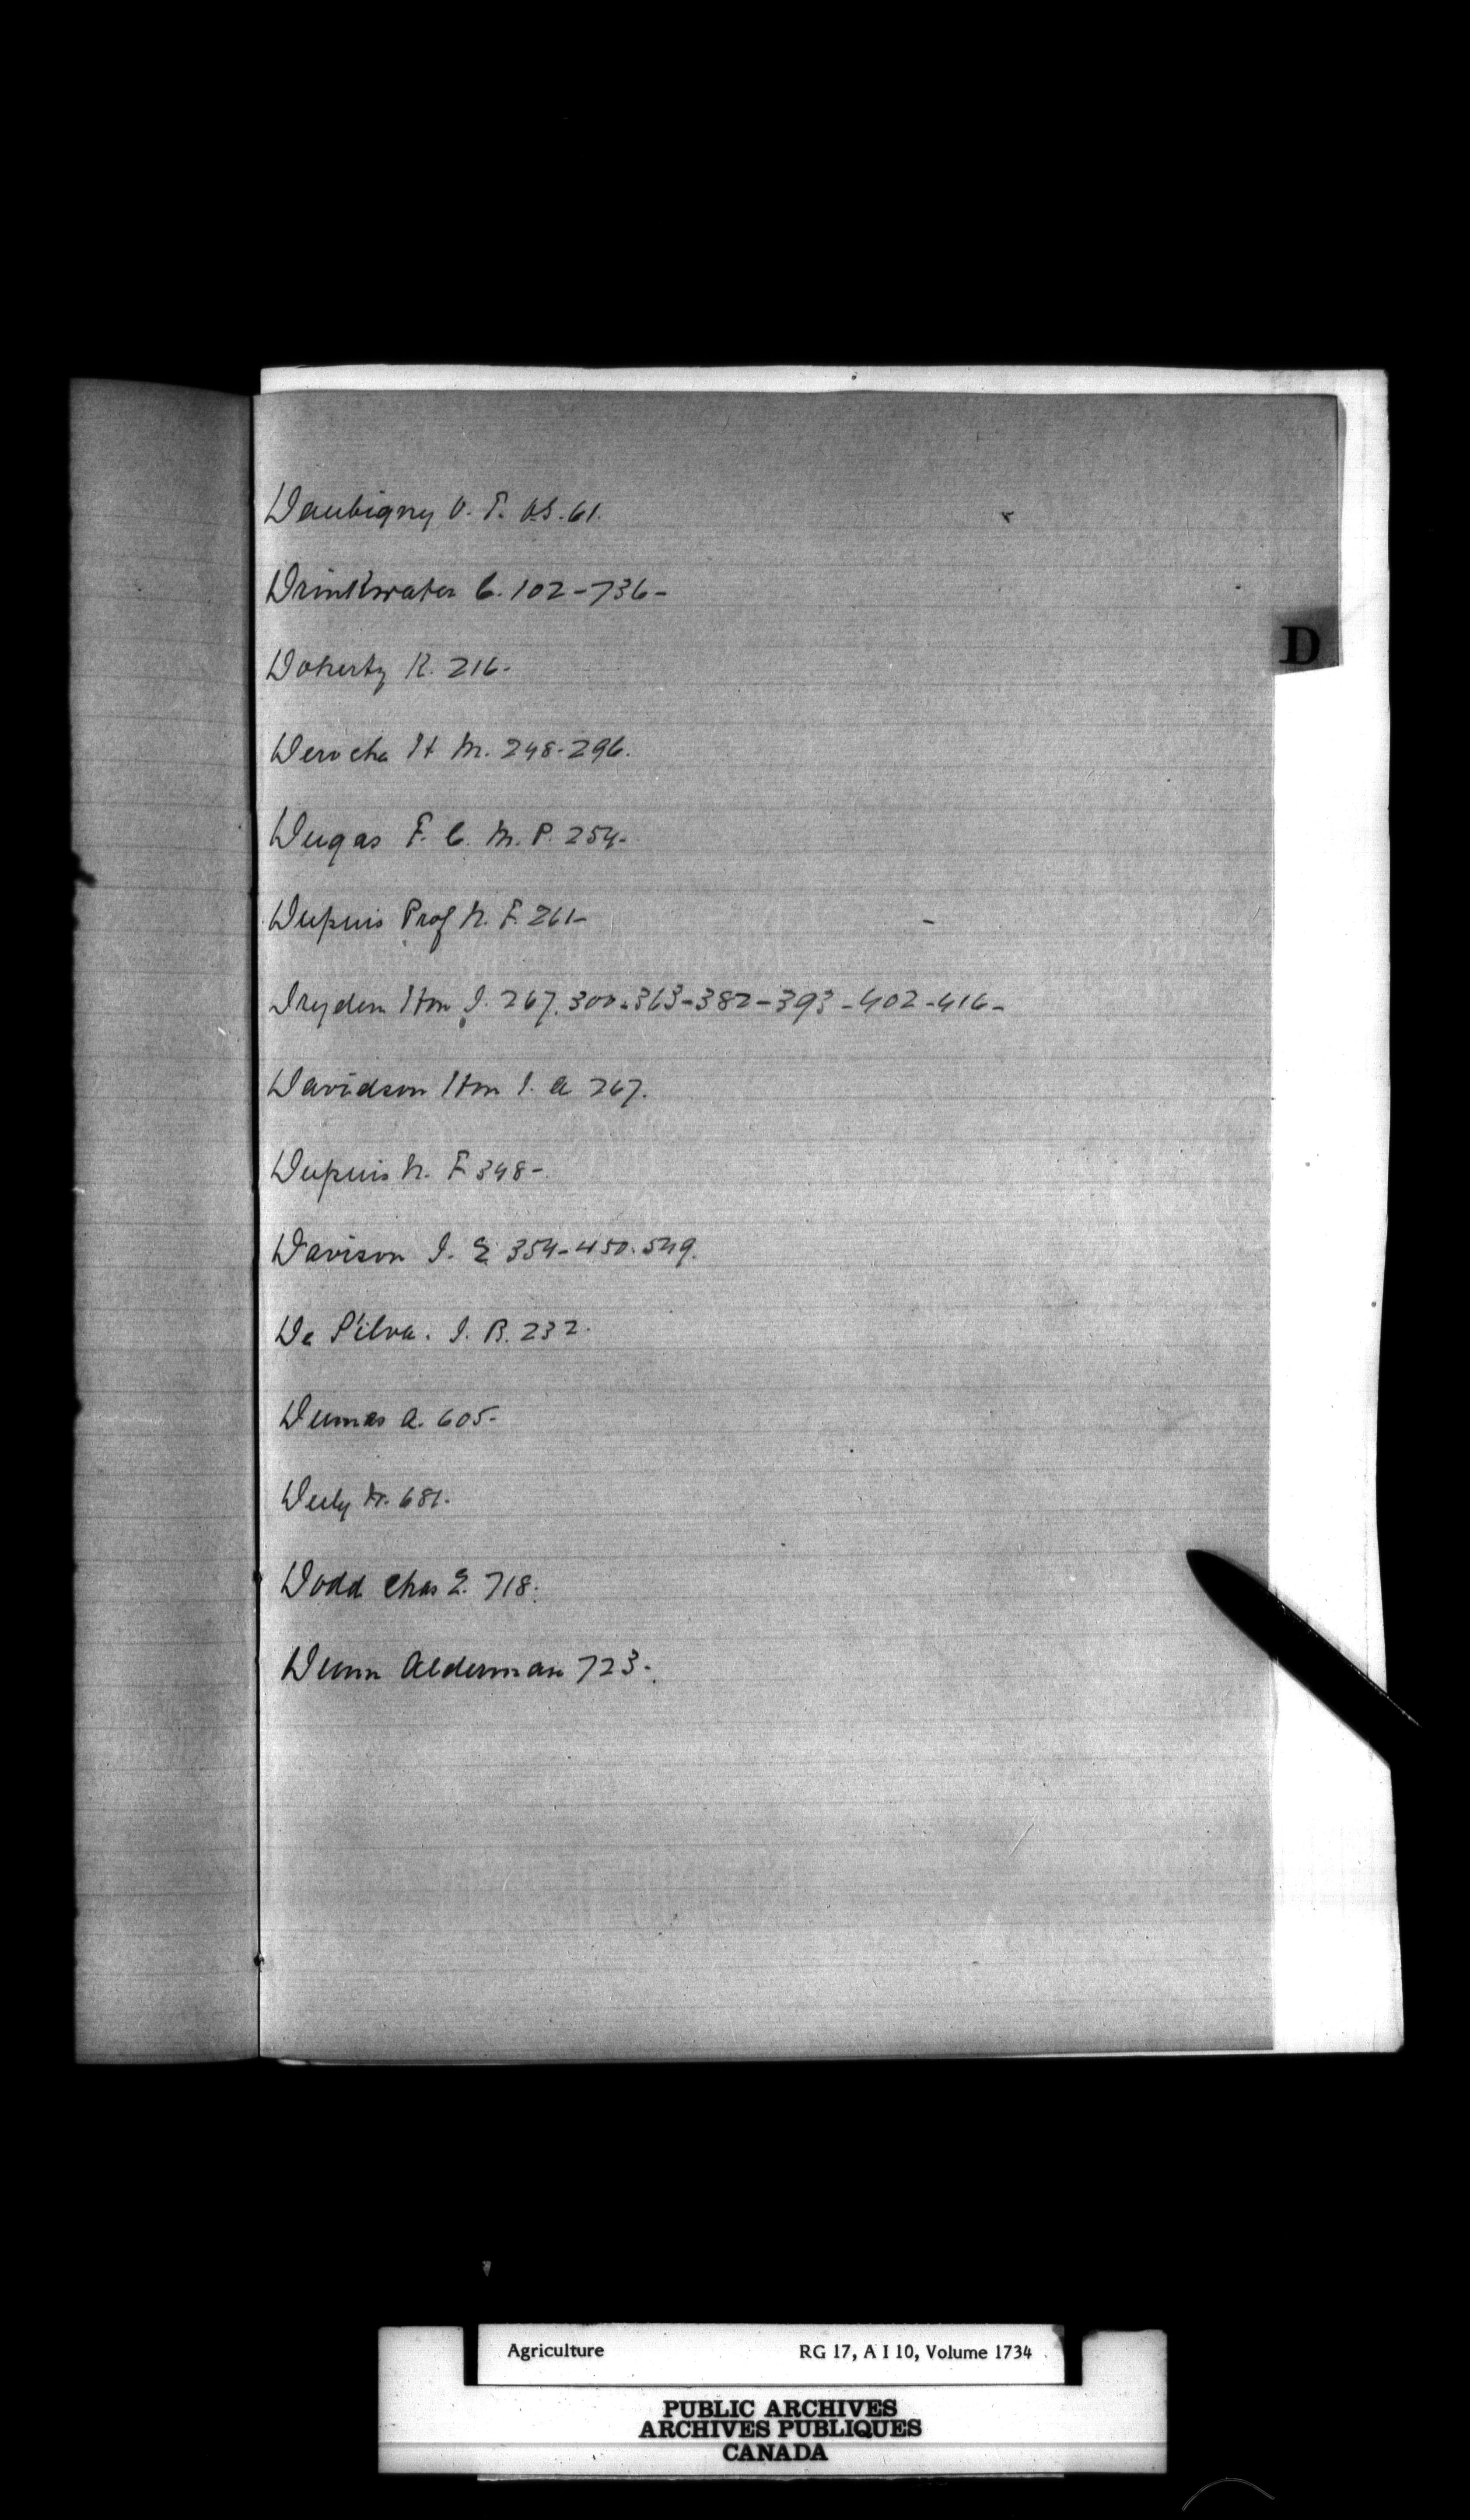 Daubigny V. T. V.S. 61.
Drinkwater C. 102-736-
D
Doherty R. 216-
Deroche H M. 248-296.
Dugas F. C. M. P. 254-
Dupuis Prof N. F. 261-
Dryden Hon J. 267. 300-363-382-393-402-416-
Davidson Hon J. A 267.
Dupuis N. F 348-
Davison J. E 354-450.549.
De Silva. J. B. 232-
Dumas A. 605-
Duly 681-
Dodd Chas E. 718.
Dunn Alderman 723-
Agriculture RG 17, A I 10, Volume 1734
PUBLIC ARCHIVES
ARCHIVES PUBLIQUES
CANADA